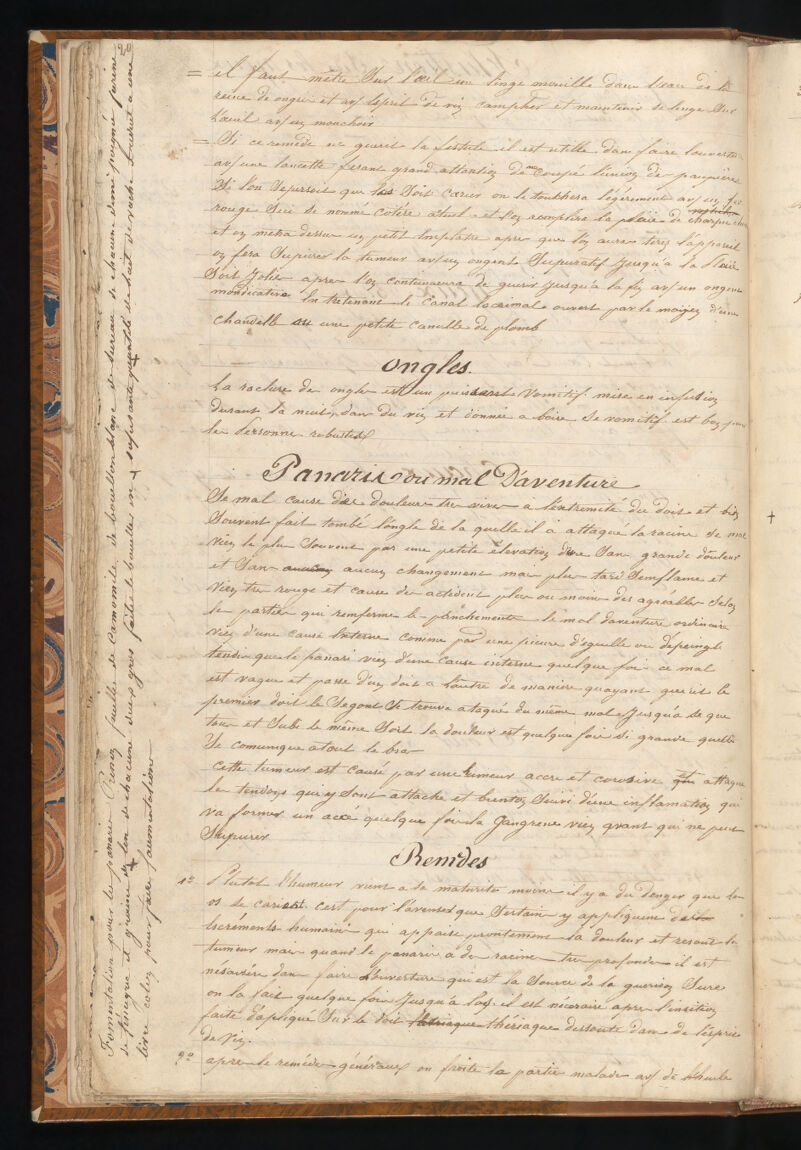 20
= il faut metre Sur l'oeil un linge mouillé dans l'eau de la
reine de ongrie et av/ l'esprit de vin campher et maintenir le linge Sur
L'oeuil av/ un mouchoir
= Si ce remède ne guerit la fistule il est utille d'en faire l'ouverture
av/ une lancette fesant grand attention de ne coupé l'union des paupières
Si l'on S'epersoit que l'os Soit carier on le touchera légèrement av/ un fer
rouge Feu de nommé cotère atuel et l'on remplira la plaie de charpie
et on metra dessu un petit Emplatre apre que l'on aura tirez l'appareil
on fera Supurer la tumeur av/ un ongent Supuratif Jusqu'a la plaie
Soit Jolie apres l'on continuera de guerir Jusqu'a la fin av/ un ongent
mondicative En tretenant le Canal lacrimal ouvert par le moyen d'une
chandelle ou une petite canulle de plomb
ongles
La raclure de ongle est un puissant Vomitif mise en infusion
durant la nuit, dan du vin et donnée a boire Se vomitif est bon pour
le personne robuste
Panaris ou mal D'aventure
Se mal cause des douleur tre vive a l'extremité du doit et bien
Souvent fait tombé l'ongle de la quelle il a attaqué la racine Se mal
vien le plu Souvent par une petite élevation dure San grande douleur
et San aucun changement mai plu tard S'emflame et
vien tre rouge et cause des actident plu ou moin des agréable Selon
le partie qui remferme le panchement le mal d'aventure ordinaire
vien d'une cause Externe comme par une picure d'eguille ou d'epeingle
tendi que le panari vien d'une cause interne quelque foi ce mal
est vague et passe d'un doit a l'autre de manière quayant guerit le
premier doit le Segont Se trouve ataqué du même mal Jusqu'a se que
tou et Subi le même Sort la douleur est quelque foi Si grande quelle
Se comunique a tout le bra
Cette tumeur est causé par une humeur acre et corosive qui attaque
le tendons qui y Sont attaché et bientôt Suivi d'une inflamation qui
va former un accé quelque foi la gangrene vien avant qui ne peut
Supurer
Remèdes
1º Plutot l'humeur vient a Sa maturité moin il y a du danger que le
os Se cariest cest pour l'avenser que Sertain y appliquent
Escréments humain qui appaise prontement la douleur et resout la
tumeur mai quand le panari a de racine tre profonde il est
nésésaire d'en faire L'ouverture qui est la Source de la guerison Sure
on la fait quelque foi Jusqu'a l'os, il est nécesaire apre l'insition
faite d'apliqué Sur le doit thériaque dessoute dans de l'esprit
de vin.
2º apre le remède généraux on frotte la partie malade av/ de L'huile
Fomentation pour le panaris Prenez feuille de Camomile, de bouillon blanc de Sureau de chacune demi poigné farine
de fénugrec et graine de lin de chacune deux gros faite le bouillir en sufisante quantité de lait de vache Environ une
livre colez pour faire fomentation